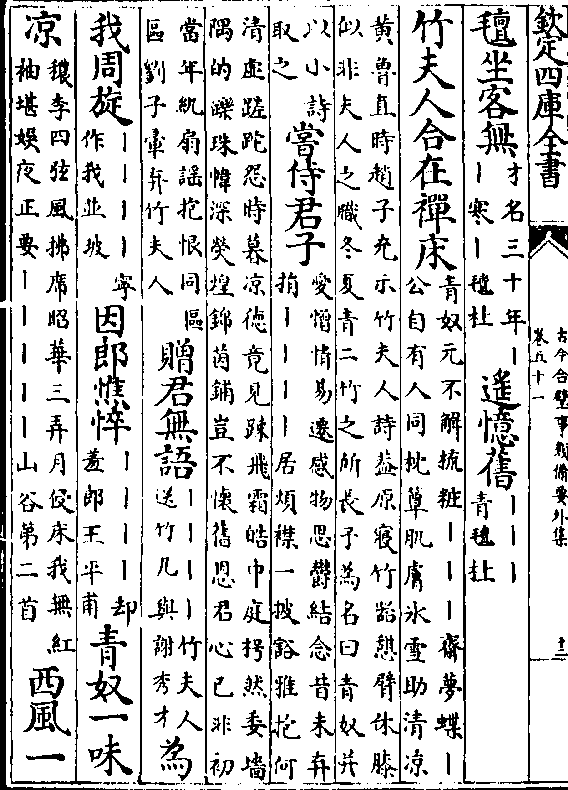 欽定四庫全書
古今合璧事類備要外集
卷五十一
十三
氊坐客無
才名三十年｜
｜寒｜氊杜
遙憶舊
｜｜｜
青氊杜
竹夫人合在禪床
青奴元不解梳粧｜｜｜齋夢蝶｜
公自有人同枕簟肌膚氷雪助清凉
黄魯直時趙子充示竹夫人詩葢原寢竹器憩臂休膝
似非夫人之職冬夏青二竹之所長予為名曰青奴并
以小詩
取之
當侍君子
愛憎情易遷感物思鬱結念昔未弃
捐｜｜｜｜居煩襟一披豁雅抱何
清虛蹉跎怨時暮凉德竟見踈飛霜皓巾庭拐然委墻
隅的皪珠幃深熒煌錦茵鋪豈不懷舊恩君心已非初
當年紈扇謡抱恨同區
區劉子翬弃竹夫人
贈君無語
｜｜｜｜竹夫人
送竹几與謝秀才
為
我周旋
｜｜｜｜寧
作我並坡
因郎憔悴
｜｜｜｜却
羞郎王平甫
青奴一味
凉
穠李四弦風拂席昭華三弄月侵床我無紅
袖堪娛夜正要｜｜｜｜｜山谷第二首
西風一